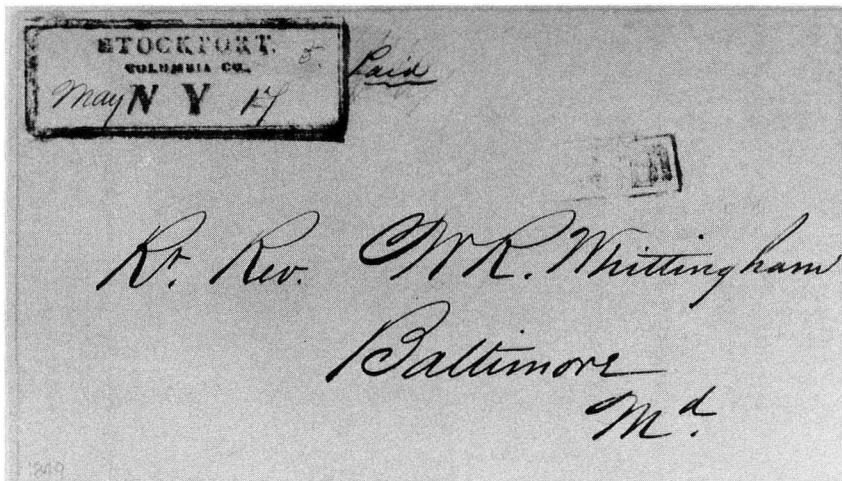 STOCKPORT.
COLUMBIA CO., 5.
May N Y 17
Paid
Rt. Rev. W R. Whittingham
Baltimore
Md.
1849